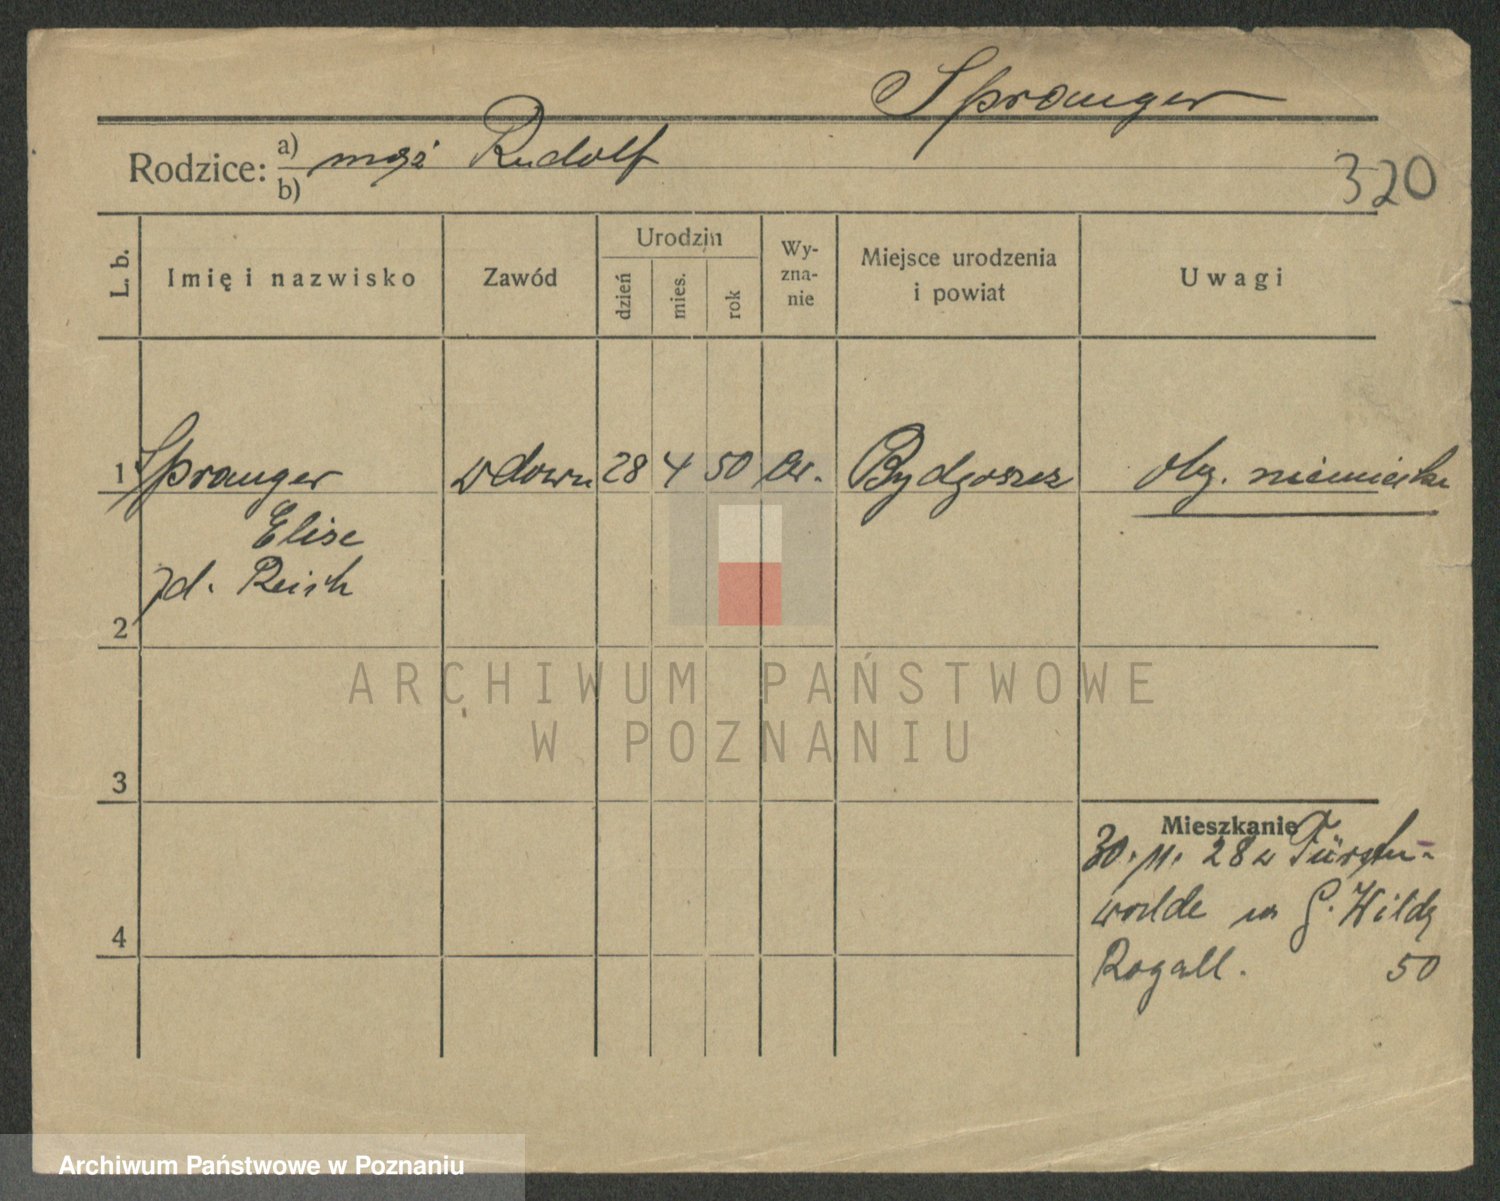 Spranger
Rodzice: a) mąż Rudolf
b)
320
L. b. Imię i nazwisko Zawód Urodzin dzień mies. rok Wy-zna-nie Miejsce urodzenia i powiat Uwagi
1 Spranger wdowa 28 4 50 Bydgoszcz oby. niemiecka
Elise
zd. Reich
2
ARCHIWUM PAŃSTWOWE
W POZNANIU
3
Mieszkanie
30. 11. 28 z Fürsten-
walde G. Wildy
4
50
Archiwum Państwowe w Poznaniu